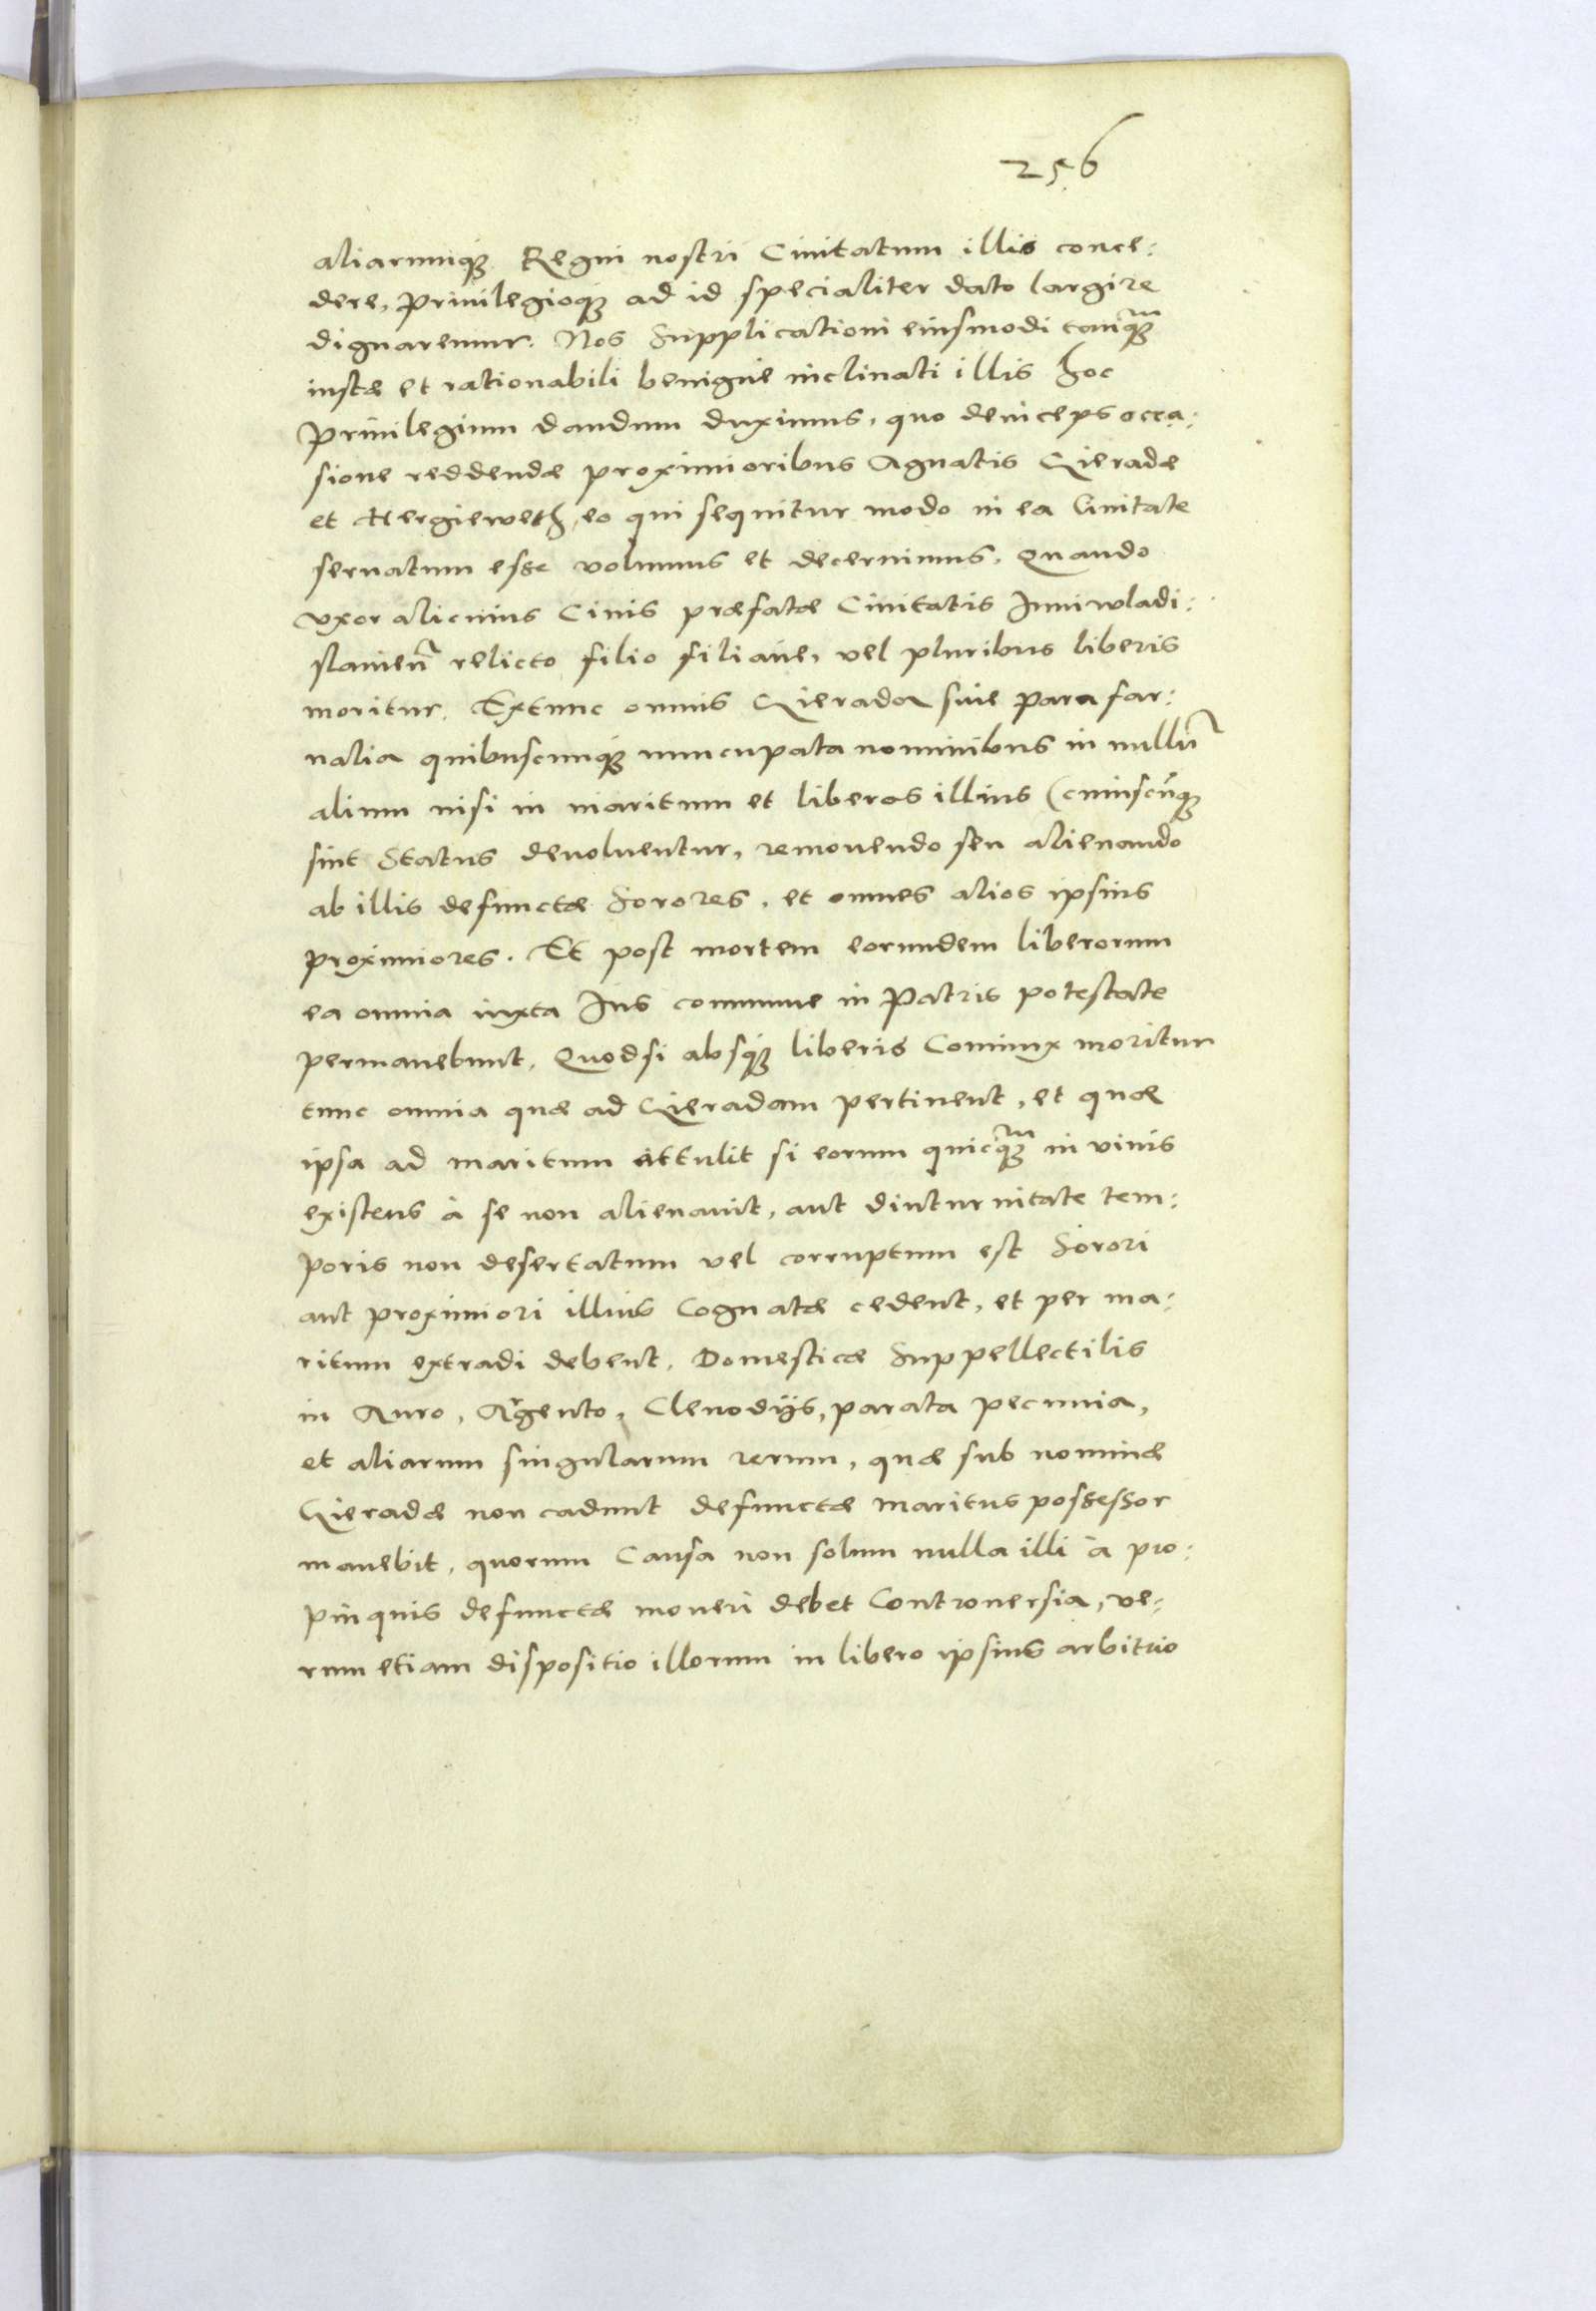 256
aliarumq́ꝫ Regni nostri Ciuitatum illis conce:
dere, priuilegioq́ꝫ ad id specialiter dato largire
dignaremur. Nos Supplicationi eiusmodi tanq̃ꝫ
iustæ et rationabili benignè inclinati illis hoc
Priuilegium dandum duximus, quo deinceps occa:
sione reddendæ proximioribus Agnatis Gieradæ
et Hergieweth, eo qui sequitur modo in ea Ciuitate
seruatum esse volumus et decernimus, Quando
vxor alicuius Ciuis præfatæ Ciuitatis Iuniwladi:
slauieñ relicto filio filiaue, vel pluribus liberis
moritur. Extunc omnis Gierada siue parafar:
nalia quibuscumq́ꝫ nuncupata nominibus in nullũ
alium nisi in maritum et liberos illius (cuiuscũqꝫ
sint Status deuoluentur, remouendo seu alienando
ab illis defunctæ Sorores, et omnes alios ipsius
proximiores. Et post mortem eorundem liberorum
ea omnia iuxta Ius commune in Patris potestate
permanebunt, Quodsi absq́ꝫ liberis Coniunx moritur
tunc omnia quæ ad Gieradam pertinent, et quæ
ipsa ad maritum attulit si eorum quicq̃ꝫ in viuis
existens à se non alienauit, aut diuturnitate tem:
poris non desertatum vel corruptum est Sorori
aut proximiori illius Cognatæ cedent, et per ma:
ritum extradi debent, Domesticæ Suppellectilis
in Auro, Argento, Clenodijs, parata pecunia,
et aliarum singularum rerum, quæ sub nominæ
Gieradæ non cadunt defunctæ maritus possessor
manebit, quorum Causa non solum nulla illi à pro:
pinquis defunctæ moueri debet Controuersia, ve:
rum etiam dispositio illorum in libero ipsius arbitrio